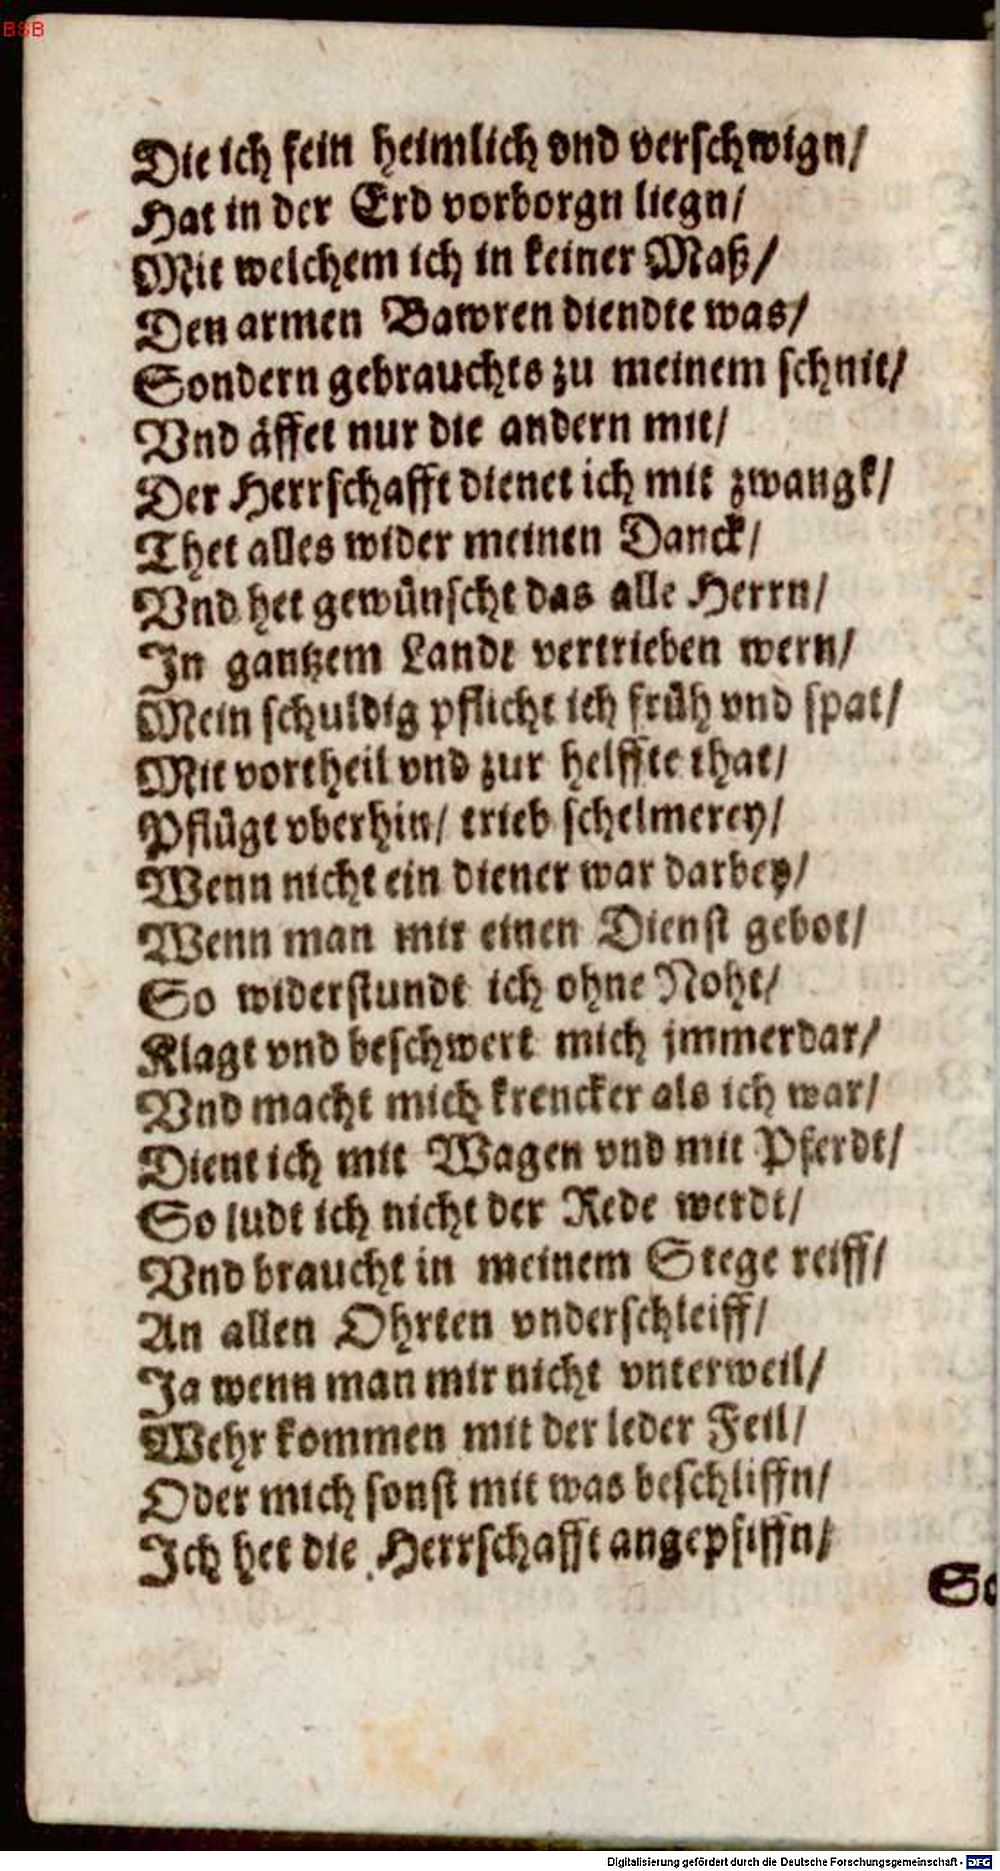 BSB
Die ich fein heimlich vnd verschwign/
Hat in der Erd vorborgn liegn/
Mit welchem ich in keiner Maß/
Den armen Bawren diendte was/
Sondern gebrauchts zu meinem schnit/
Vnd äffet nur die andern mit/
Der Herrschafft dienet ich mit zwangk/
Thet alles wider meinen Danck/
Vnd het gewünscht das alle Herrn/
In gantzem Landt vertrieben wern/
Mein schuldig pflicht ich früh vnd spat/
Mit vortheil vnd zur helffte that/
Pflügt vberhin/ trieb schelmerey/
Wenn nicht ein diener war darbey/
Wenn man mir einen Dienst gebot/
So widerstundt ich ohne Noht/
Klagt vnd beschwert mich jmmerdar/
Vnd macht mich krencker als ich war/
Dient ich mit Wagen vnd mit Pferdt/
So ludt ich nicht der Rede werdt/
Vnd braucht in meinem Stege reiff/
An allen Ohrten vnderschleiff/
Ja wenn man mir nicht vnterweil/
Wehr kommen mit der leder Feil/
Oder mich sonst mit was beschliffn/
Ich het die Herrschafft angepfiffn/
So
Digitalisierung gefördert durch die Deutsche Forschungsgemeinschaft - DFG